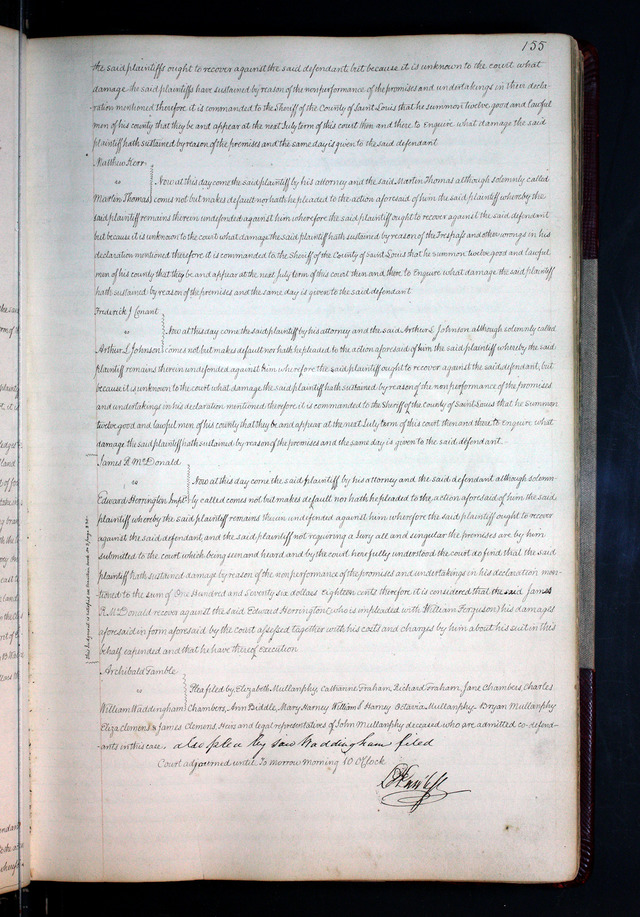 155
the said plaintiffs ought to recover against the said defendant but because it is unknown to the court what
damage the said plaintiffs have sustained by reason of the nonperformance of the promises and undertakings in their decla-
ration mentioned therefore it is commanded to the Sheriff of the County of Saint Louis that he summon twelve good and lawful
men of his county that they be and appear at the next July term of this court then and there to Enquire what damage the said
plaintiff hath sustained by reason of the premises and the same day is given to the said defendant
Matthew Kerr
vs Now at this day come the said plaintiff by his attorney and the said Martin Thomas although solemnly called
Martin Thomas comes not but makes default nor hath he pleaded to the action aforesaid of him the said plaintiff whereby the
said plaintiff remains therein undefended against him wherefore the said plaintiff ought to recover against the said defendant
but because it is unknown to the court what damage the said plaintiff hath sustained by reason of the Trespass and other wrongs in his
declaration mentioned therefore it is commanded to the Sheriff of the County of Saint Louis that he summon twelve good and lawful
men of his county that they be and appear at the next July term of this court then and there to Enquire what damage the said plaintiff
hath sustained by reason of the premises and the same day is given to the said defendant
Frederick J Conant
vs Now at this day come the said plaintiff by his attorney and the said Arthur L Johnson although solemnly called
Arthur L Johnson comes not but makes default nor hath he pleaded to the action aforesaid of him the said plaintiff whereby the said
plaintiff remains therein undefended against him wherefore the said plaintiff ought to recover against the said defendant, but
because it is unknown to the court what damage the said plaintiff hath sustained by reason of the non performance of the promises
and undertakings in his declaration mentioned therefore it is commanded to the Sheriff of the County of Saint Louis that he summon
twelve good and lawful men of his county that they be and appear at the next July term of this court then and there to Enquire what
damage the said plaintiff hath sustained by reason of the premises and the same day is given to the said defendant.
James R McDonald
vs Now at this day come the said plaintiff by his attorney and the said defendant although solemn-
Edward Herrington Impld ly called comes not but makes default nor hath he pleaded to the action aforesaid of him the said
plaintiff whereby the said plaintiff remains therein undefended against him wherefore the said plaintiff ought to recover
against the said defendant, and the said plaintiff not requiring a Jury all and singular the premises are by him
submitted to the court which being seen and heard and by the court here fully understood the court do find that the said
plaintiff hath sustained damage by reason of the nonperformance of the promises and undertakings in his declaration men-
tioned to the sum of One Hundred and Seventy six dollars Eighteen cents therefore it is considered that the said James
R. McDonald recover against the said Edward Herrington (who is impleaded with William Ferguson) his damages
aforesaid in form aforesaid by the court assessed together with his costs and charges by him about his suit in this
behalf expended and that he have thereof execution
Archibald Gamble
vs Plea filed by Elizabeth Mullanphy, Catharine Graham, Richard Graham, Jane Chambers Charles
William Waddingham Chambers, Ann Biddle, Mary Harney William S Harney Octavia Mullanphy Bryan Mullanphy
Eliza Clemens & James Clemens Heirs and legal representatives of John Mullanphy deceased who are admitted co-defend-
ants in this case, also plea by said Waddingham filed
Court adjourned until To morrow morning 10 O'clock